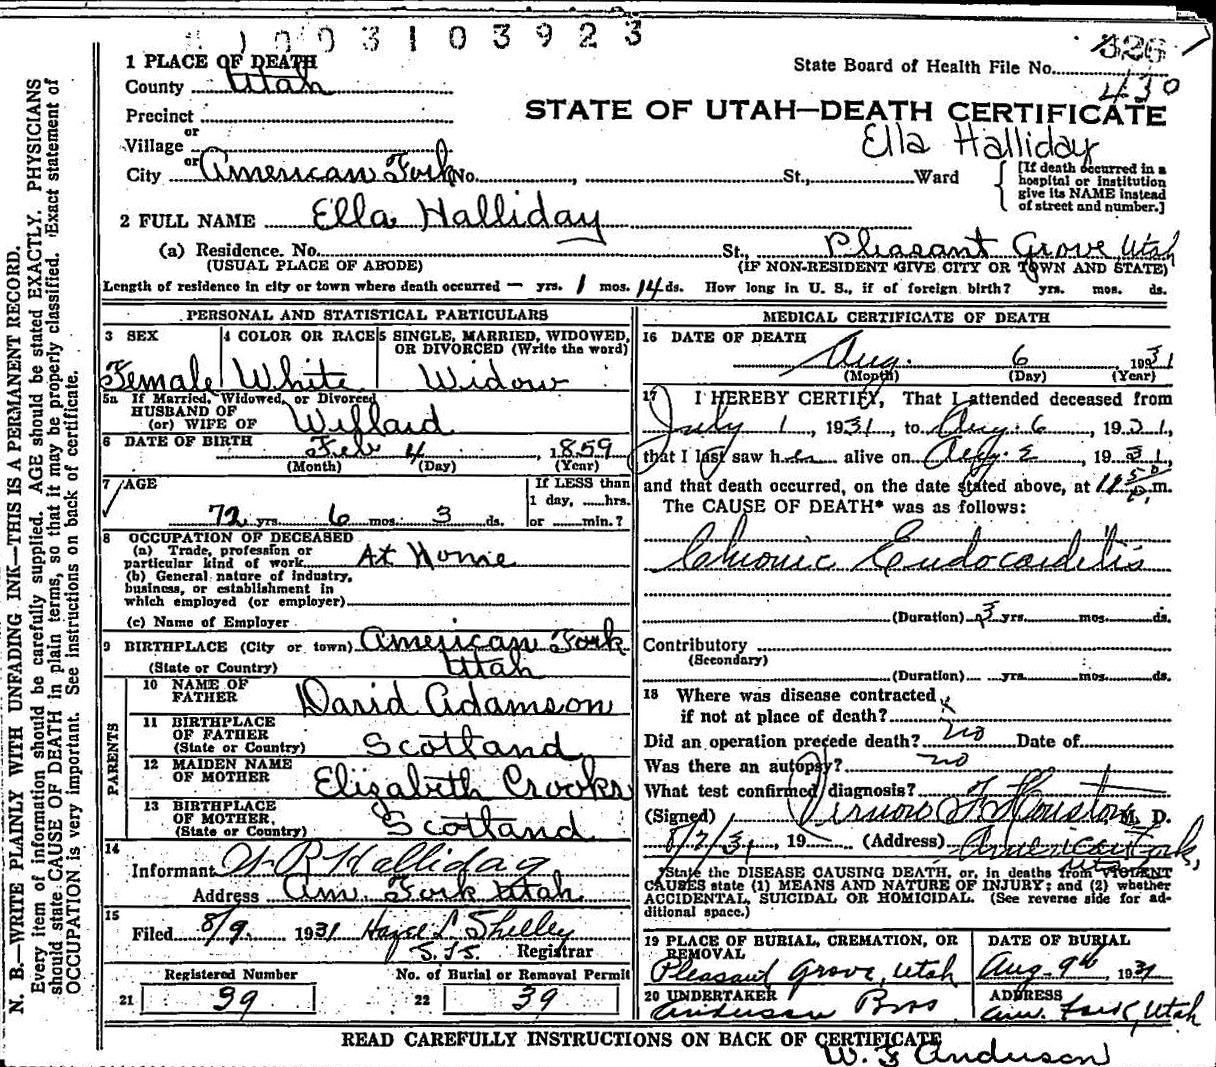 1003103923
326
State Board of Health File No. 430
1 PLACE OF DEATH
County Utah
STATE OF UTAH—DEATH CERTIFICATE
Precinct
or
Village
Ella Halliday
or
City American Fork No. , St., Ward
[If death occurred in a hospital or institution give its NAME instead of street and number.]
2 FULL NAME Ella Halliday
(a) Residence. No. St., Pleasant Grove Utah
(USUAL PLACE OF ABODE) (IF NON-RESIDENT GIVE CITY OR TOWN AND STATE)
Length of residence in city or town where death occurred — yrs. 1 mos. 14 ds. How long in U. S., if of foreign birth? yrs. mos. ds.
PERSONAL AND STATISTICAL PARTICULARS
3 SEX 4 COLOR OR RACE 5 SINGLE, MARRIED, WIDOWED, OR DIVORCED (Write the word)
Female White Widow
5a If Married, Widowed, or Divorced
HUSBAND OF
(or) WIFE OF Willard
6 DATE OF BIRTH Feb 4, 1859
(Month) (Day) (Year)
7 AGE If LESS than
1 day, ......hrs.
72 yrs. 6 mos. 3 ds. or ......min.?
8 OCCUPATION OF DECEASED
(a) Trade, profession or
particular kind of work At Home
(b) General nature of industry,
business, or establishment in
which employed (or employer)
(c) Name of Employer
9 BIRTHPLACE (City or town) American Fork
(State or Country) Utah
PARENTS
10 NAME OF
FATHER David Adamson
11 BIRTHPLACE
OF FATHER
(State or Country) Scotland
12 MAIDEN NAME
OF MOTHER Elizabeth Crooks
13 BIRTHPLACE
OF MOTHER,
(State or Country) Scotland
14
Informant W R Halliday
Address Am. Fork Utah
15
Filed 8/9. 1931 Hazel L Shelley
Registrar
Registered Number No. of Burial or Removal Permit
21 39 22 39
MEDICAL CERTIFICATE OF DEATH
16 DATE OF DEATH
Aug. 6 1931
(Month) (Day) (Year)
17 I HEREBY CERTIFY, That I attended deceased from
July 1, 1931, to Aug. 6, 1931,
that I last saw her alive on , 1931,
and that death occurred, on the date stated above, at m.
The CAUSE OF DEATH* was as follows:
Chronic Endocarditis
(Duration) 3 yrs. mos. ds.
Contributory
(Secondary)
(Duration) yrs. mos. ds.
18 Where was disease contracted
if not at place of death? x
Did an operation precede death? no Date of
Was there an autopsy? no
What test confirmed diagnosis?
(Signed) Vernon F Houston M. D.
8/7/31, 19 (Address) American Fork, Utah
*State the DISEASE CAUSING DEATH, or, in deaths from VIOLENT
CAUSES state (1) MEANS AND NATURE OF INJURY; and (2) whether
ACCIDENTAL, SUICIDAL OR HOMICIDAL. (See reverse side for ad-
ditional space.)
19 PLACE OF BURIAL, CREMATION, OR REMOVAL DATE OF BURIAL
Pleasant Grove, Utah Aug 9th, 1931
20 UNDERTAKER ADDRESS
Anderson Bros Am. Fork, Utah
READ CAREFULLY INSTRUCTIONS ON BACK OF CERTIFICATE
W. F. Anderson
N. B.—WRITE PLAINLY WITH UNFADING INK—THIS IS A PERMANENT RECORD.
Every item of information should be carefully supplied. AGE should be stated EXACTLY. PHYSICIANS
should state CAUSE OF DEATH in plain terms, so that it may be properly classified. Exact statement of
OCCUPATION is very important. See instructions on back of certificate.